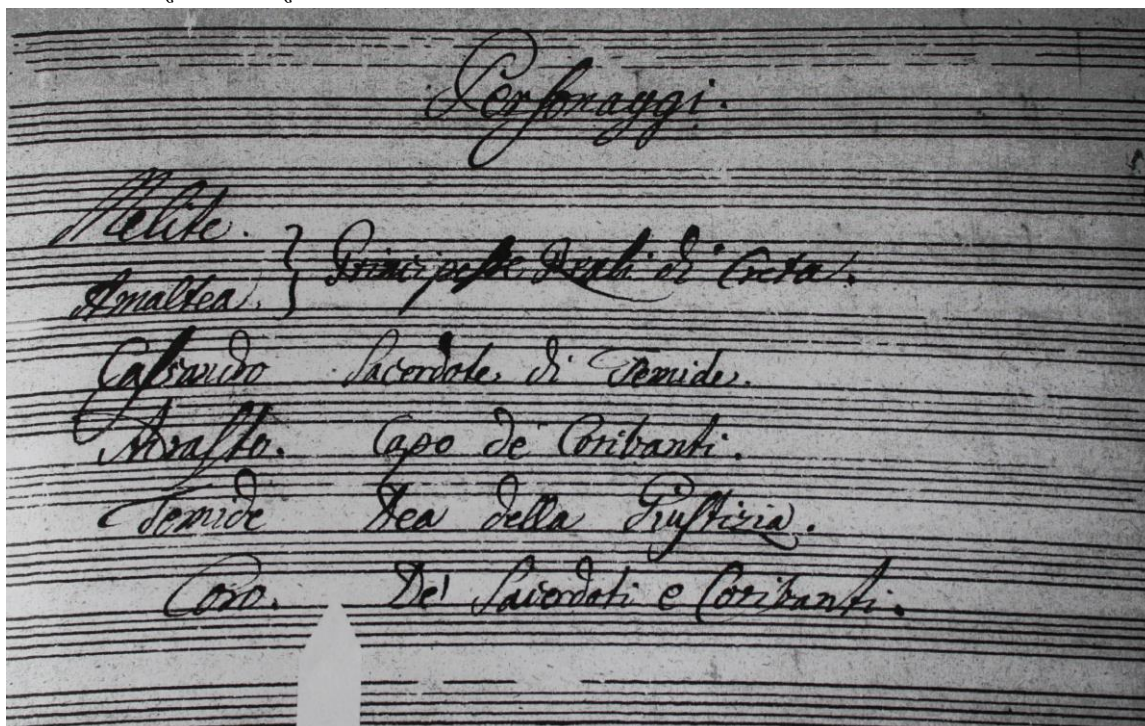 Personaggi.
Melite.
Principesse Reali di Creta.
Amaltea.
Cassandro Sacerdote di Temide.
Adrasto. Capo de' Coribanti.
Temide Dea della Giustizia.
Coro. De' Sacerdoti e Coribanti.